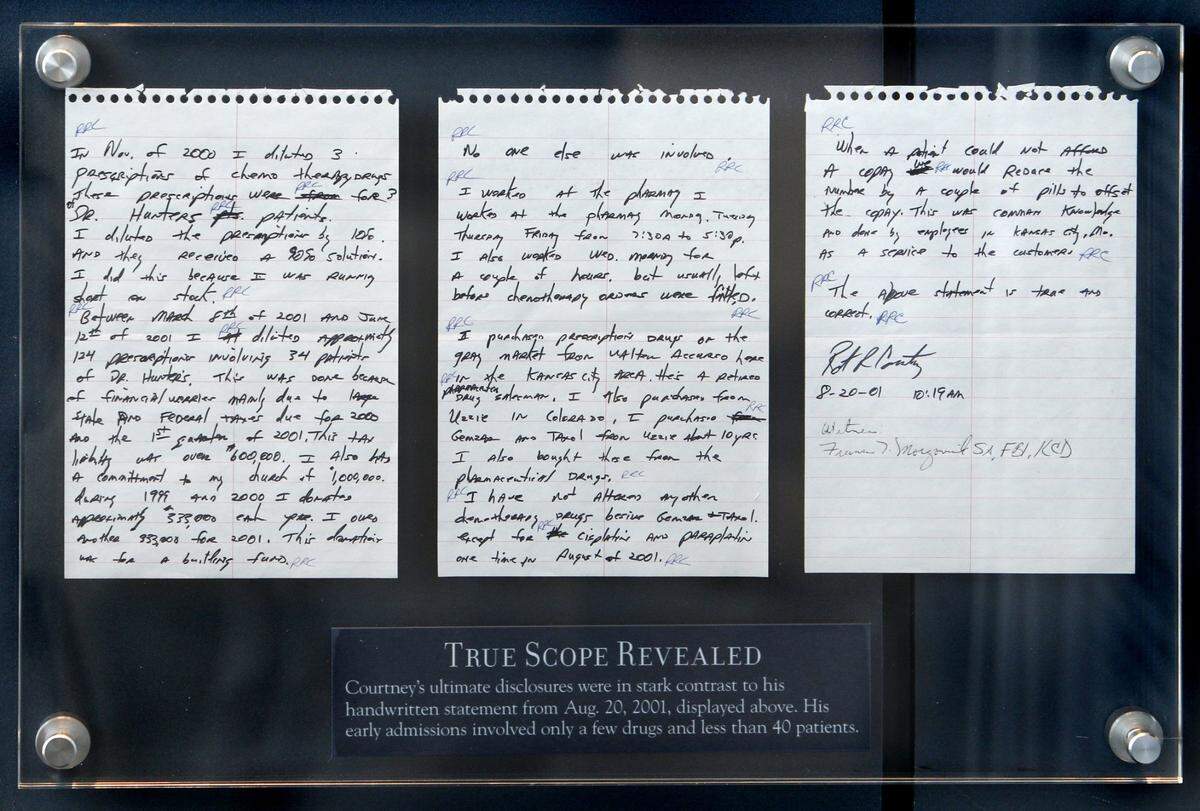 RRC
In Nov. of 2000 I diluted 3
prescriptions of chemo therapy drugs
These prescriptions were from RRC for 3
of Dr. Hunters RRC patients.
I diluted the prescriptions by 10%.
And they received a 90% solution.
I did this because I was running
short on stock. RRC
RRC
Between March 8th of 2001 and June
12th of 2001 I RRC diluted approximatly
124 prescriptions involving 34 patients
of Dr. Hunters. This was done because
of financial worries mainly due to large
State and Federal taxes due for 2000
and the 1st quarter of 2001. This tax
liability was over $600,000. I also had
a commitment to my church of $1,000,000.
during 1999 and 2000 I donated
approximatly $333,000 each year. I owed
another 333,000 for 2001. This donation
was for a building fund. RRC
RRC
No one else was involved.
RRC
RRC
I worked at the pharmacy I
worked at the pharmacy Monday, Tuesday
Thursday Friday from 7:30A to 5:30p.
I also worked Wed. morning for
a couple of hours. but usually left
before chemotherapy orders were filled.
RRC
RRC
I purchased prescription drugs on the
gray market from Walton Accurso here
RRC in the Kansas City area. He's a retired
pharmaceutical
drug salesman. I also purchased from
RRC
Uzzie in Colorado. I purchased from
Gemzar and Taxol from Uzzie about 10 yrs
I also bought these from the
pharmaceutical drugs. RRC
RRC I have not altered any other
chemotherapy drugs beside Gemzar + Taxol.
except for RRC the cisplatin and paraplatin
one time in August of 2001. RRC
RRC
When a patient could not afford
a copay we RRC would reduce the
number by a couple of pills to offset
the copay. This was common knowledge
and done by employees in Kansas City, Mo.
as a service to the customer. RRC
RRC
The above statement is true and
correct. RRC
8-20-01 10:19 AM
Witness
FBI, KCD
TRUE SCOPE REVEALED
Courtney's ultimate disclosures were in stark contrast to his
handwritten statement from Aug. 20, 2001, displayed above. His
early admissions involved only a few drugs and less than 40 patients.